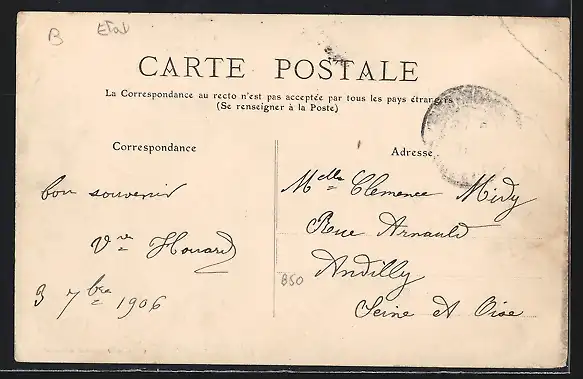 B Etat
CARTE POSTALE
La Correspondance au recto n'est pas acceptée par tous les pays étrangers
(Se renseigner à la Poste)
Correspondance
bon souvenir
Vve Houard
3 7bre 1906
Adresse
Melle Clemence Midy
Rue Arnauld
Andilly
Seine et Oise
B50